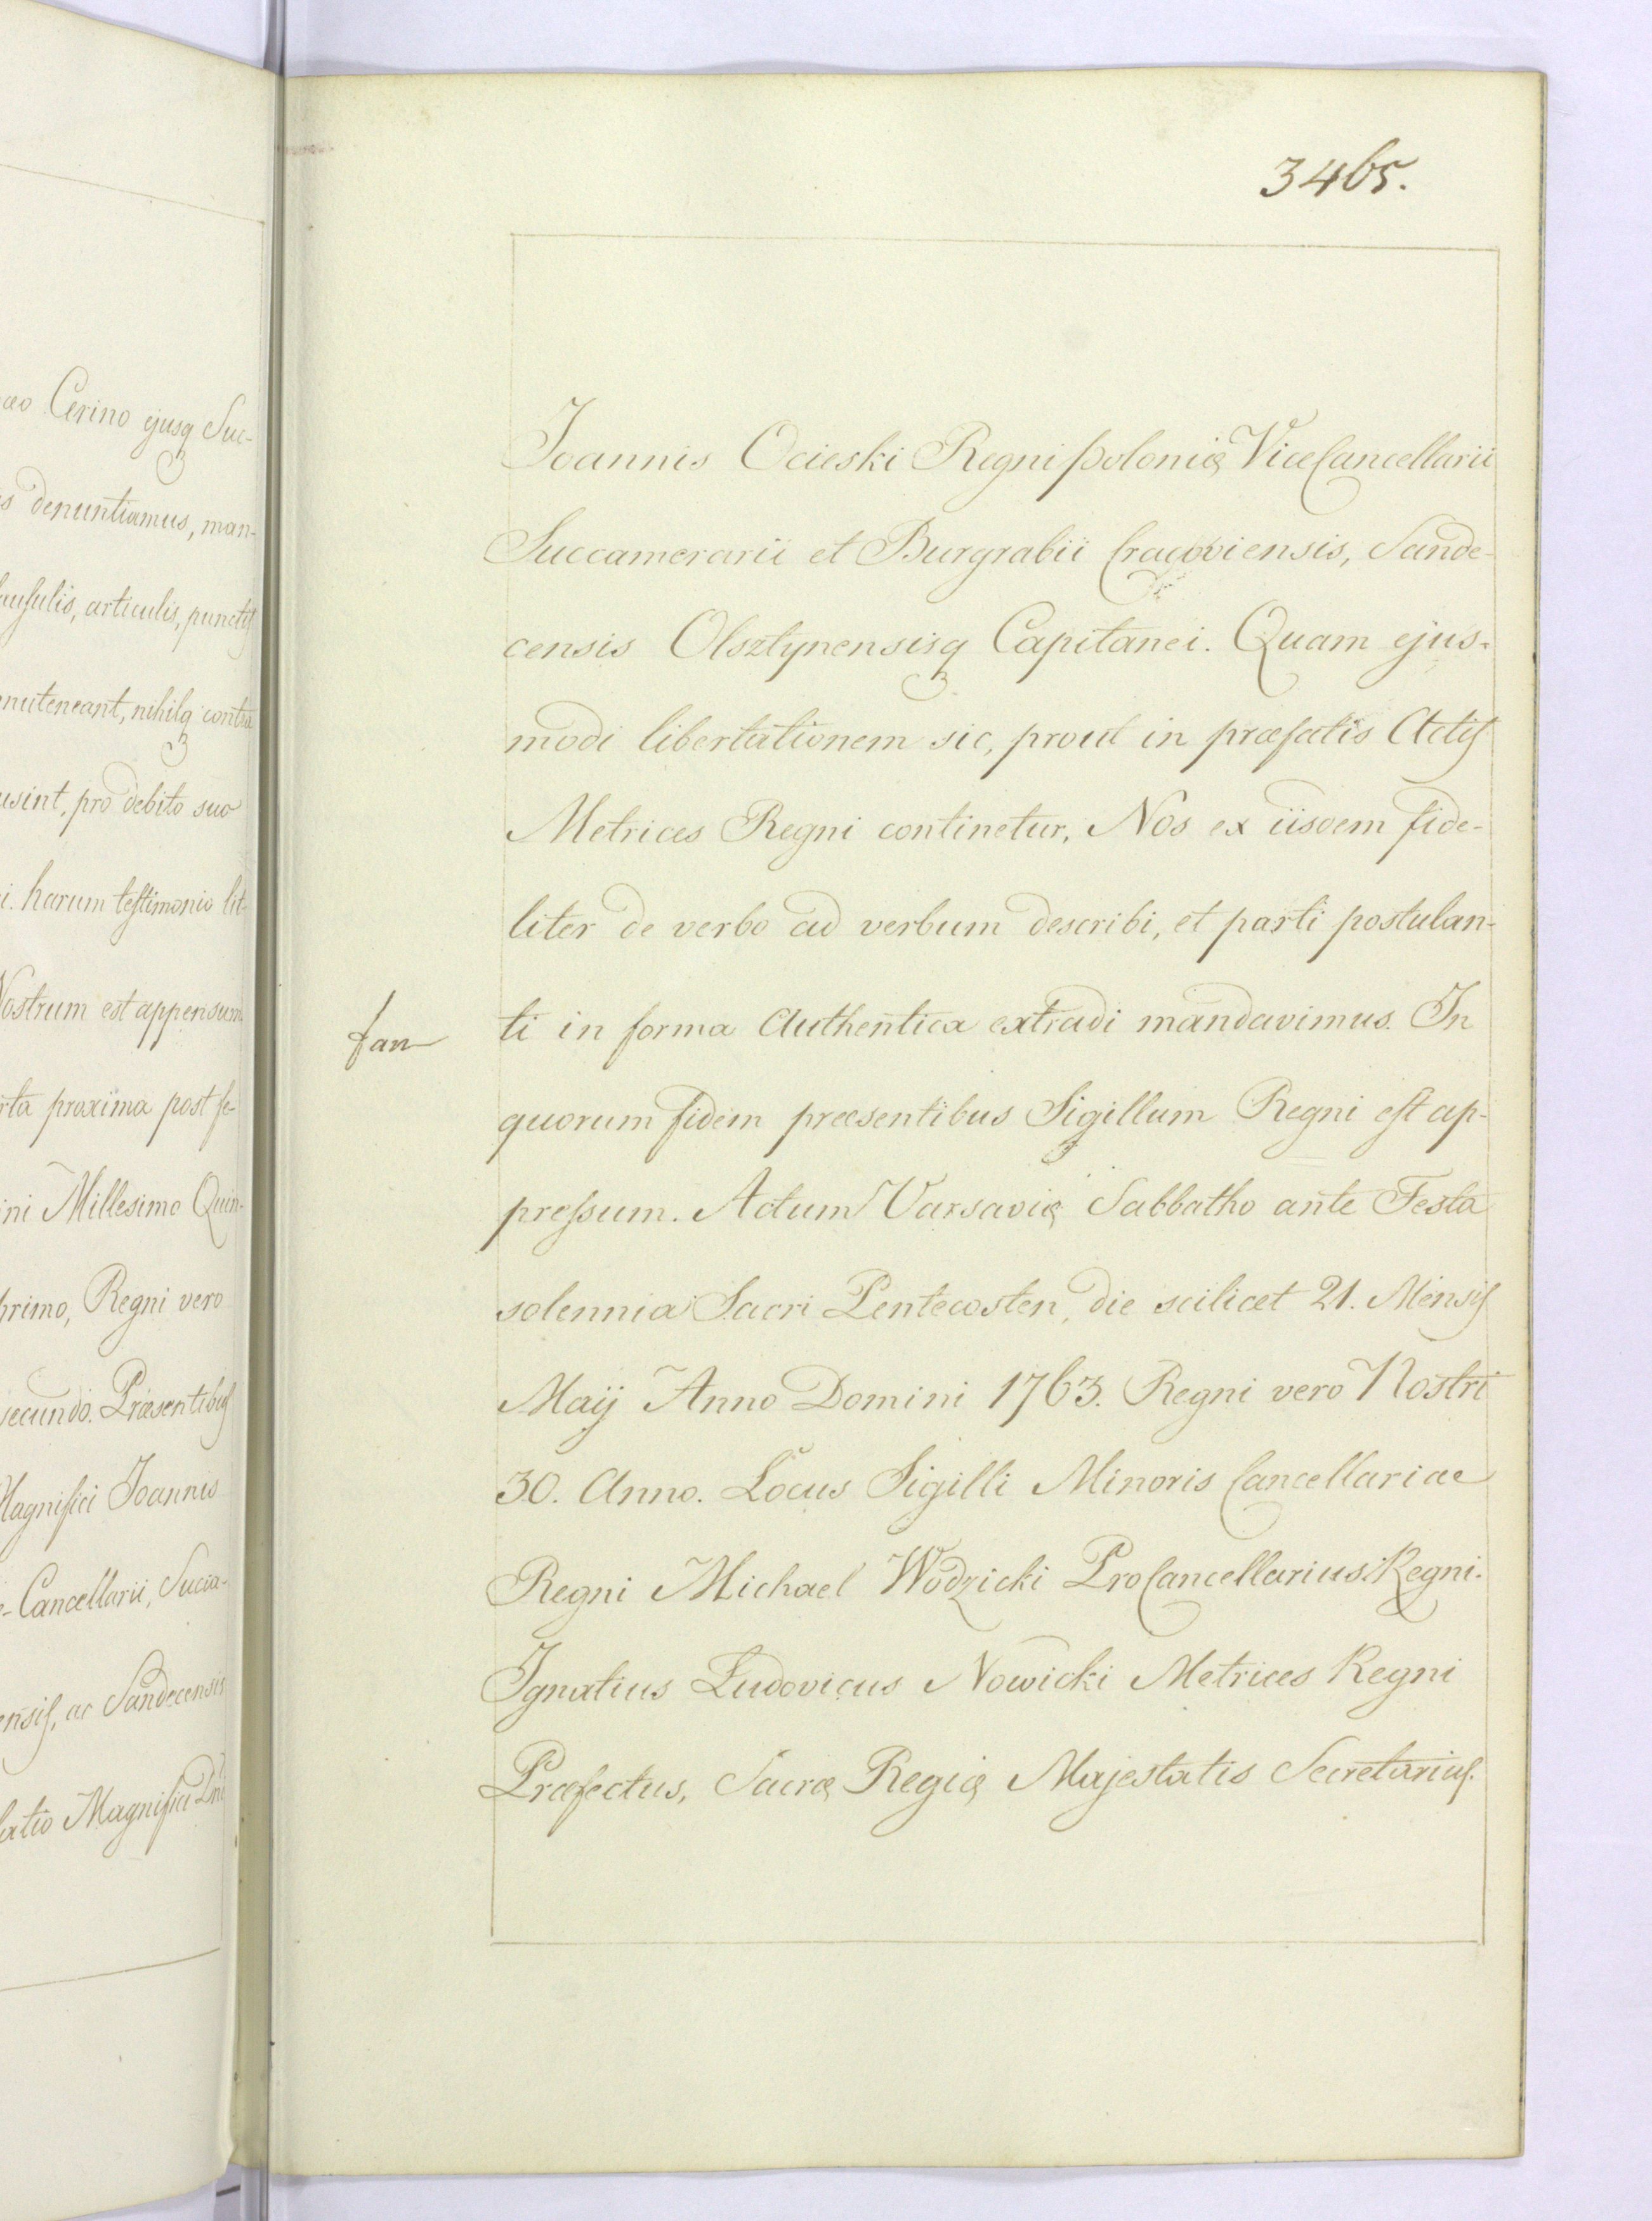 ao Cerino ejusq Suc-
s denuntiamus, man-
ausulis, articulis, punctis
nuteneant, nihilq contra
usint, pro debito suo
i. harum testimonio lit-
Nostrum est appensum.
rta proxima post fe-
ini Millesimo Quin-
primo, Regni vero
secundo. Præsentibus
Magnifici Joannis
e-Cancellarii, Succa-
ensis, ac Sandecensis
latio Magnifici Dni
3465.
Joannis Ocieski Regni Poloniæ ViceCancellarii
Succamerarii et Burgrabii Cracoviensis, Sande-
censis Olsztynensisq Capitanei. Quam ejus-
modi libertationem sic, prout in præfatis Actis
Metrices Regni continetur, Nos ex iisdem fide-
liter de verbo ad verbum describi, et parti postulan-
ti in forma Authentica extradi mandavimus. In
fan
quorum fidem præsentibus Sigillum Regni est ap-
pressum. Actum Varsaviæ Sabbatho ante Festa
solennia Sacri Pentecosten, die scilicet 21. Mensis
Maij Anno Domini 1763. Regni vero Nostri
30. Anno. Locus Sigilli Minoris Cancellariae
Regni Michael Wodzicki ProCancellarius Regni.
Ignatius Ludovicus Nowicki Metrices Regni
Præfectus, Sacræ Regiæ Majestatis Secretarius.